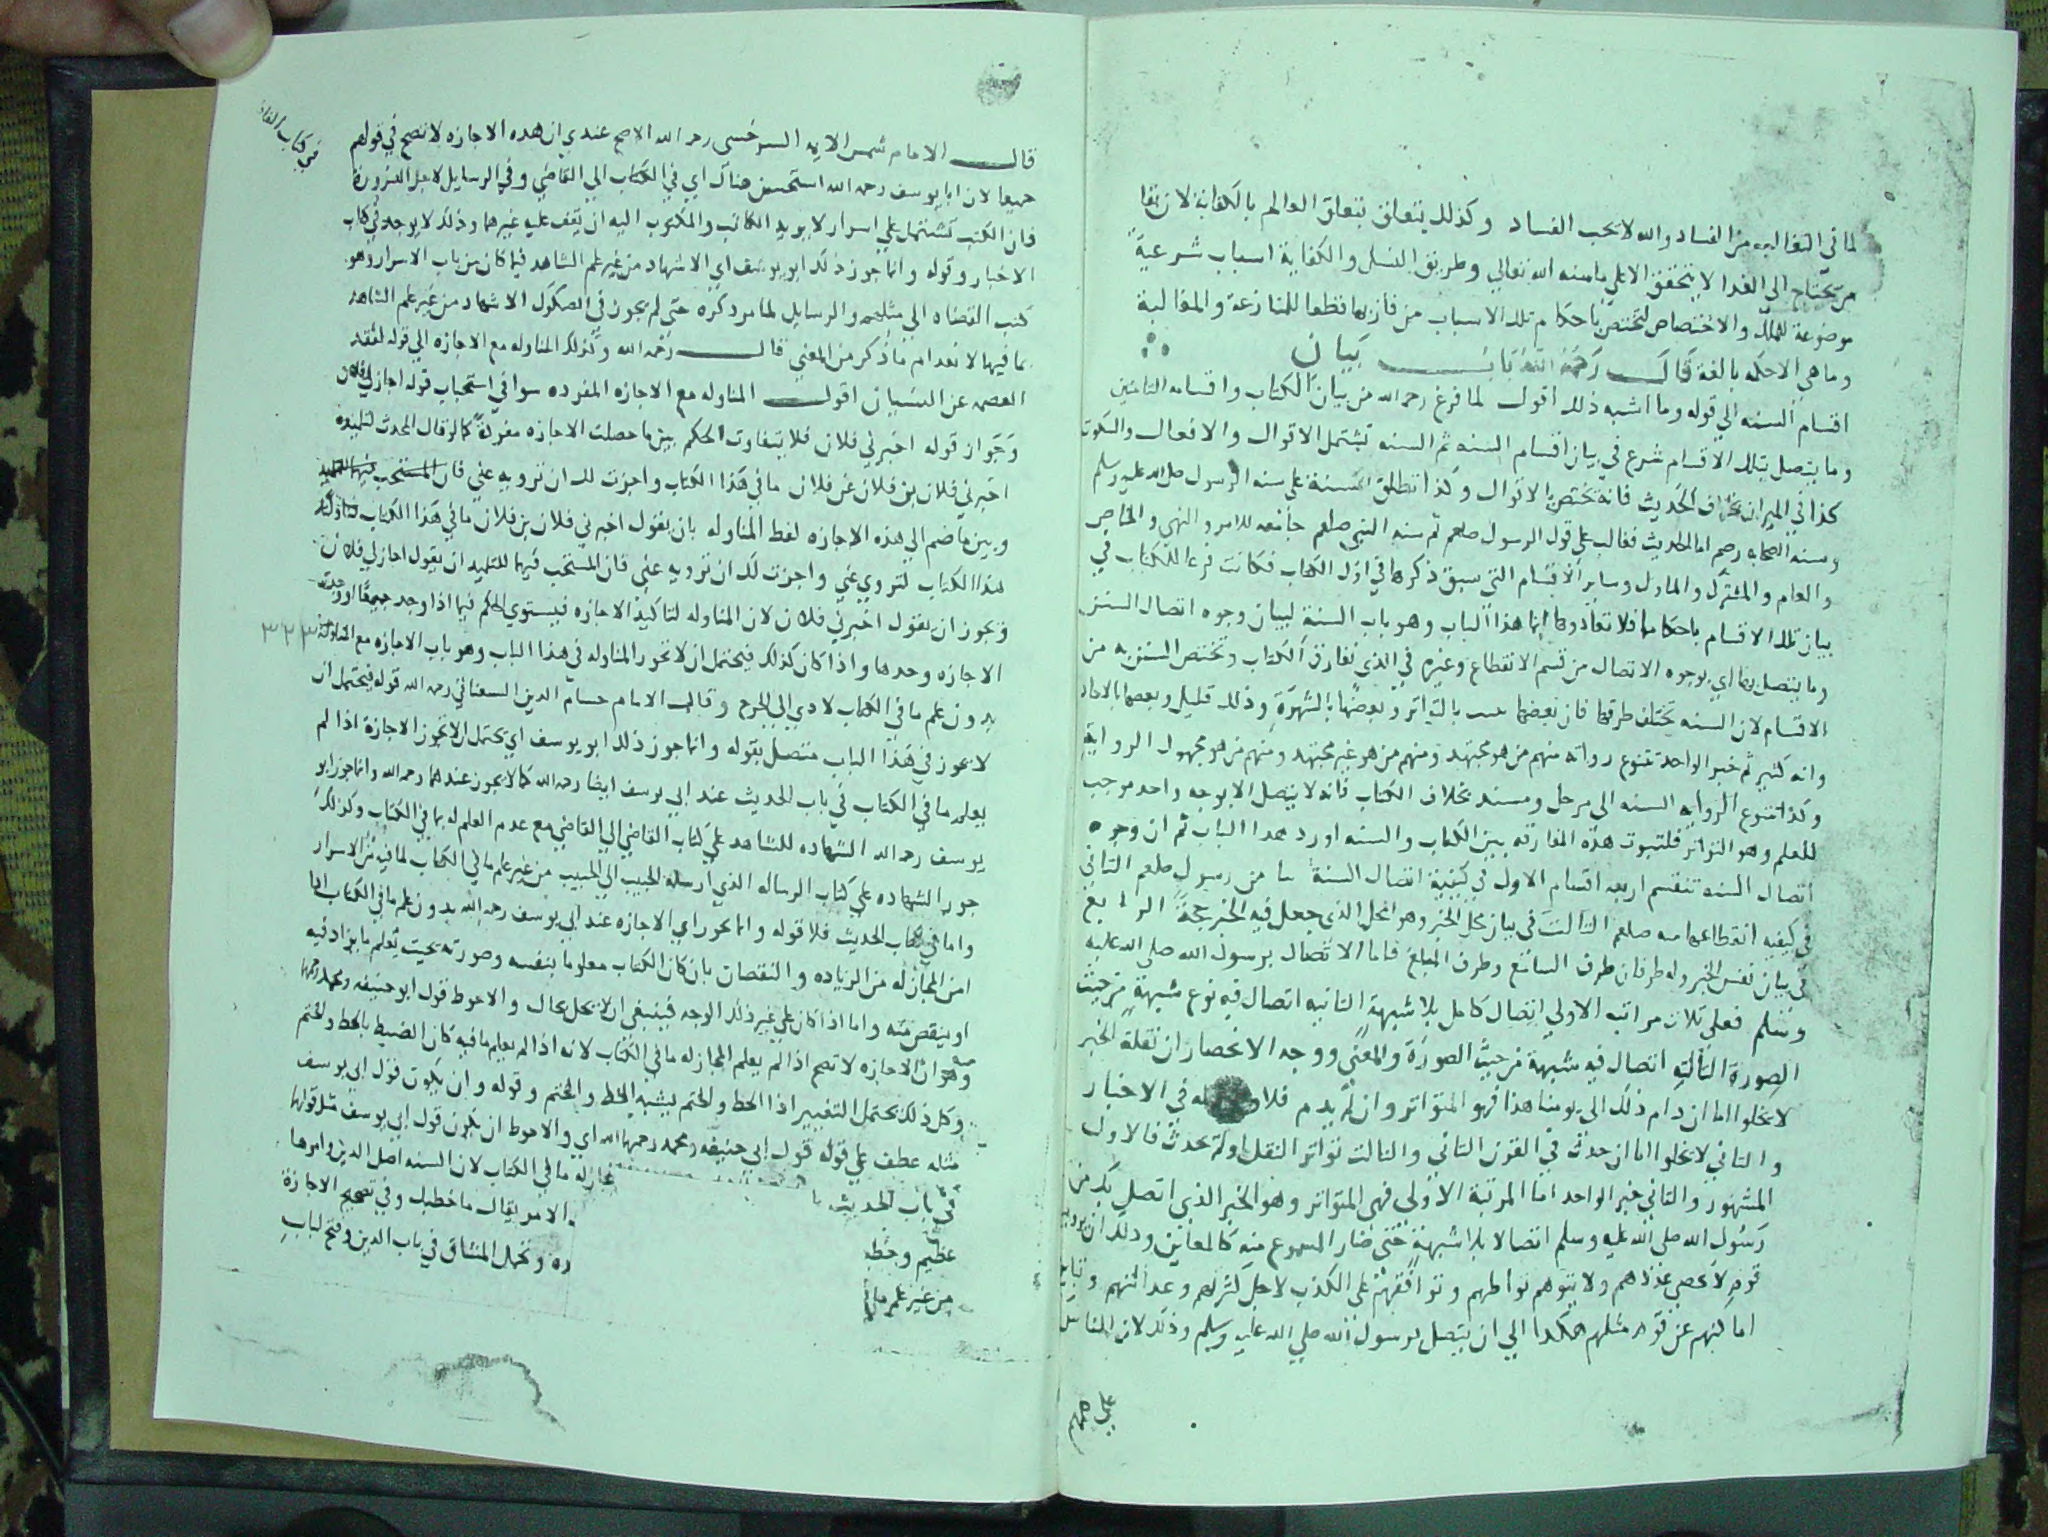 لما في التغالب من الفساد والله لا يحب الفساد وكذلك يتعلق بتعلق العالم بالكفاية لان بقا
من يحتاج الى الغدا لا يتحقق الا على ما سنه الله تعالي وطريق النسل والكفاية اسباب شرعية
موضوعة للملك والاختصاص لتختص باحكام تلك الاسباب من فاز بها قطعا للمنازعة والمغالبة
وما هي الا حكمه بالغة قال رحمه الله باب بيان
اقسام السنه الي قوله وما اشبه ذلك اقول لما فرغ رحمه الله من بيان الكتاب واقسامه
وما يتصل بتلك الاقسام شرع في بيان اقسام السنه ثم السنه تشتمل الاقوال والافعال والسكوت
كذا في الميزان بخلاف الحديث فانه تختص بالاقوال وكذا تطلق السنة علي سنه الرسول صلى الله عليه وسلم
وسنه الصحابه رضهم اما الحديث فغالب علي قول الرسول صلعم ثم سنه النبي صلعم جامعه للامر والنهي والخاص
والعام والمشترك والماول وساير الاقسام التي سبق ذكرها في اول الكتاب فكانت فرعا للكتاب في
بيان تلك الاقسام باحكامها فلا نعاد وانما هذا الباب وهو باب السنة لبيان وجوه اتصال السنن
وما يتصل بها اي بوجوه الاتصال من قسم الانقطاع وغيره في الذي تفارق الكتاب وتختص السنن به من
الاقسام لان السنه تختلف طرقها فان بعضها بالتواتر وبعضها بالشهرة وذلك قليل وبعضها بالاحاد
وانه كثير ثم خبر الواحد تتنوع رواته منهم من هو مجتهد ومنهم من هو غير مجتهد ومنهم من هو مجهول الرواية
وكذا تتنوع الروايه السنه الى مرسل ومسند بخلاف الكتاب فانه لا يتصل الا بوجه واحد موجب
للعلم وهو التواتر فلثبوت هذه المفارقه بين الكتاب والسنه اورد هذا الباب ثم ان وجوه
اتصال السنه تنقسم اربعه اقسام الاول في كيفية اتصال السنة بنا من رسول صلعم الثاني
في كيفيه انقطاعها عنه صلعم الثالث في بيان محل الخبر وهو المحل الذي جعل فيه الخبر حجة الرابع
في بيان نفس الخبر وله طرفان طرف السامع وطرف المبلغ فاما الاتصال برسول الله صلى الله عليه
وسلم فعلى ثلاث مراتبه الاولي اتصال كامل بلا شبهة الثانيه اتصال فيه نوع شبهة من حيث
الصورة الثالثه اتصال فيه شبهة من حيث الصورة والمعنى ووجه الانحصار ان نقلة الخبر
لا يخلوا اما ان دام ذلك الى يومنا هذا فهو المتواتر وان لم يدم فلا في الاخبار
والثاني لا يخلوا اما ان حدث في القرن الثاني والثالث تواتر النقل اولم يحدث فالاول
المشهور والثاني خبر الواحد اما المرتبة الاولى فهي المتواتر وهو الخبر الذي اتصل بك من
رسول الله صلى الله عليه وسلم اتصالا بلا شبهة حتى صار المسموع منه كالمعاين وذلك ان يرويه
قوم لا يحصي عددهم ولا يتوهم تواطيهم وتوافقهم على الكذب لاجل كثرتهم وعدالتهم وتباين
اماكنهم عن قوم مثلهم هكذا الي ان يتصل برسول الله صلي الله عليه وسلم وذلك لان الناس
علي
قال الامام شمس الايمه السرخسي رحمه الله الاصح عندي ان هذه الاجازه لا تصح في قولهم
جميعا لان ابا يوسف رحمه الله استحسن هناك اي في الكتاب الي القاضي وفي الرسايل لاجل الضرورة
فان الكتب تشتمل علي اسرار لا يريد الكاتب والمكتوب اليه ان يقف عليه غيرهما وذلك لا يوجد في كتاب
الاخبار وقوله وانما جوز ذلك ابو يوسف اي الاشهاد من غير علم الشاهد فيما كان من باب الاسرار وهو
كتب القضاه الي مثلهم والرسايل لما مر ذكره حتي لم يجوز في الصكوك الاشهاد من غير علم الشاهد
بما فيها لانعدام ما ذكر من المعني قال رحمه الله وكذلك المناوله مع الاجازه الي قوله لفقد
العصمه عن النسيان اقول المناوله مع الاجازه المفرده سوا في استحباب قوله اجازلي فلان
وجواز قوله اخبرني فلان فلا يتفاوت الحكم بين ما حصلت الاجازه مفردة كما لو قال المحدث لتلميذه
اخبرني فلان بن فلان عن فلان ما في هذا الكتاب واجزت لك ان ترويه عني فان المستحب فيها للتلميذ
وبين ما ضم الي هذه الاجازه لفظ المناوله بان يقول اخبرني فلان بن فلان ما في هذا الكتاب فناولتك
هذا الكتاب لتروي عني واجزت لك ان ترويه عني فان المستحب فيها للتلميذ ان يقول اجازلي فلان
وتجوز ان يقول اخبرني فلان لان المناوله لتاكيد الاجازه فيستوي الحكم فيها اذا وجد جميعا او وجدت
الاجازه وحدها واذا كان كذلك فيحتمل ان لا تجوز المناوله في هذا الباب وهو باب الاجازه مع المناولة
بدون علم ما في الكتاب لادي الي الحرج وقال الامام حسام الدين السغناقي رحمه الله قوله فيحتمل ان
لا يجوز في هذا الباب متصل بقوله وانما جوز ذلك ابو يوسف اي يحتمل ان لا تجوز الاجازة اذا لم
يعلم ما في الكتاب في باب الحديث عند ابي يوسف ايضا رحمه الله كما لا يجوز عندهما رحمه الله وانما جوز ابو
يوسف رحمه الله الشهاده للشاهد علي كتاب القاضي الي القاضي مع عدم العلم له بما في الكتاب وكذلك
جوز الشهاده علي كتاب الرساله الذي ارسله الحبيب الي الحبيب من غير علم ما في الكتاب لما فيه من الاسرار
واما في كتاب الحديث فلا قوله وانما يجوز اي الاجازه عند ابي يوسف رحمه الله بدون علم ما في الكتاب اذا
امن المجاز له من الزياده والنقصان بان كان الكتاب معلوما بنفسه وصورته بحيث يعلم ما يزاد فيه
او ينقص منه واما اذا كان علي غير ذلك الوجه فينبغي ان لا يحل بحال والاحوط قول ابو حنيفه ومحمد رحمهما
وهو ان الاجازه لا تصح اذا لم يعلم المجاز له ما في الكتاب لانه اذا لم يعلم ما فيه كان الضبط بالخط والختم
وكل ذلك يحتمل التغيير اذا الخط والختم يشبه الخط والختم وقوله وان يكون قول ابي يوسف
مثله عطف علي قوله قول ابي حنيفه ومحمد رحمهما الله اي والاحوط ان يكون قول ابي يوسف مثل قولهما
في باب الحديث ما في الكتاب لان السنه اصل الدين وامرها
عظيم وخطه الامر يقال ما خطبك وفي تصحيح الاجازة
من غير علم ما وتحمل المشاق في باب الدين وفتح لباب
في كتاب القاضي
٣٢٣